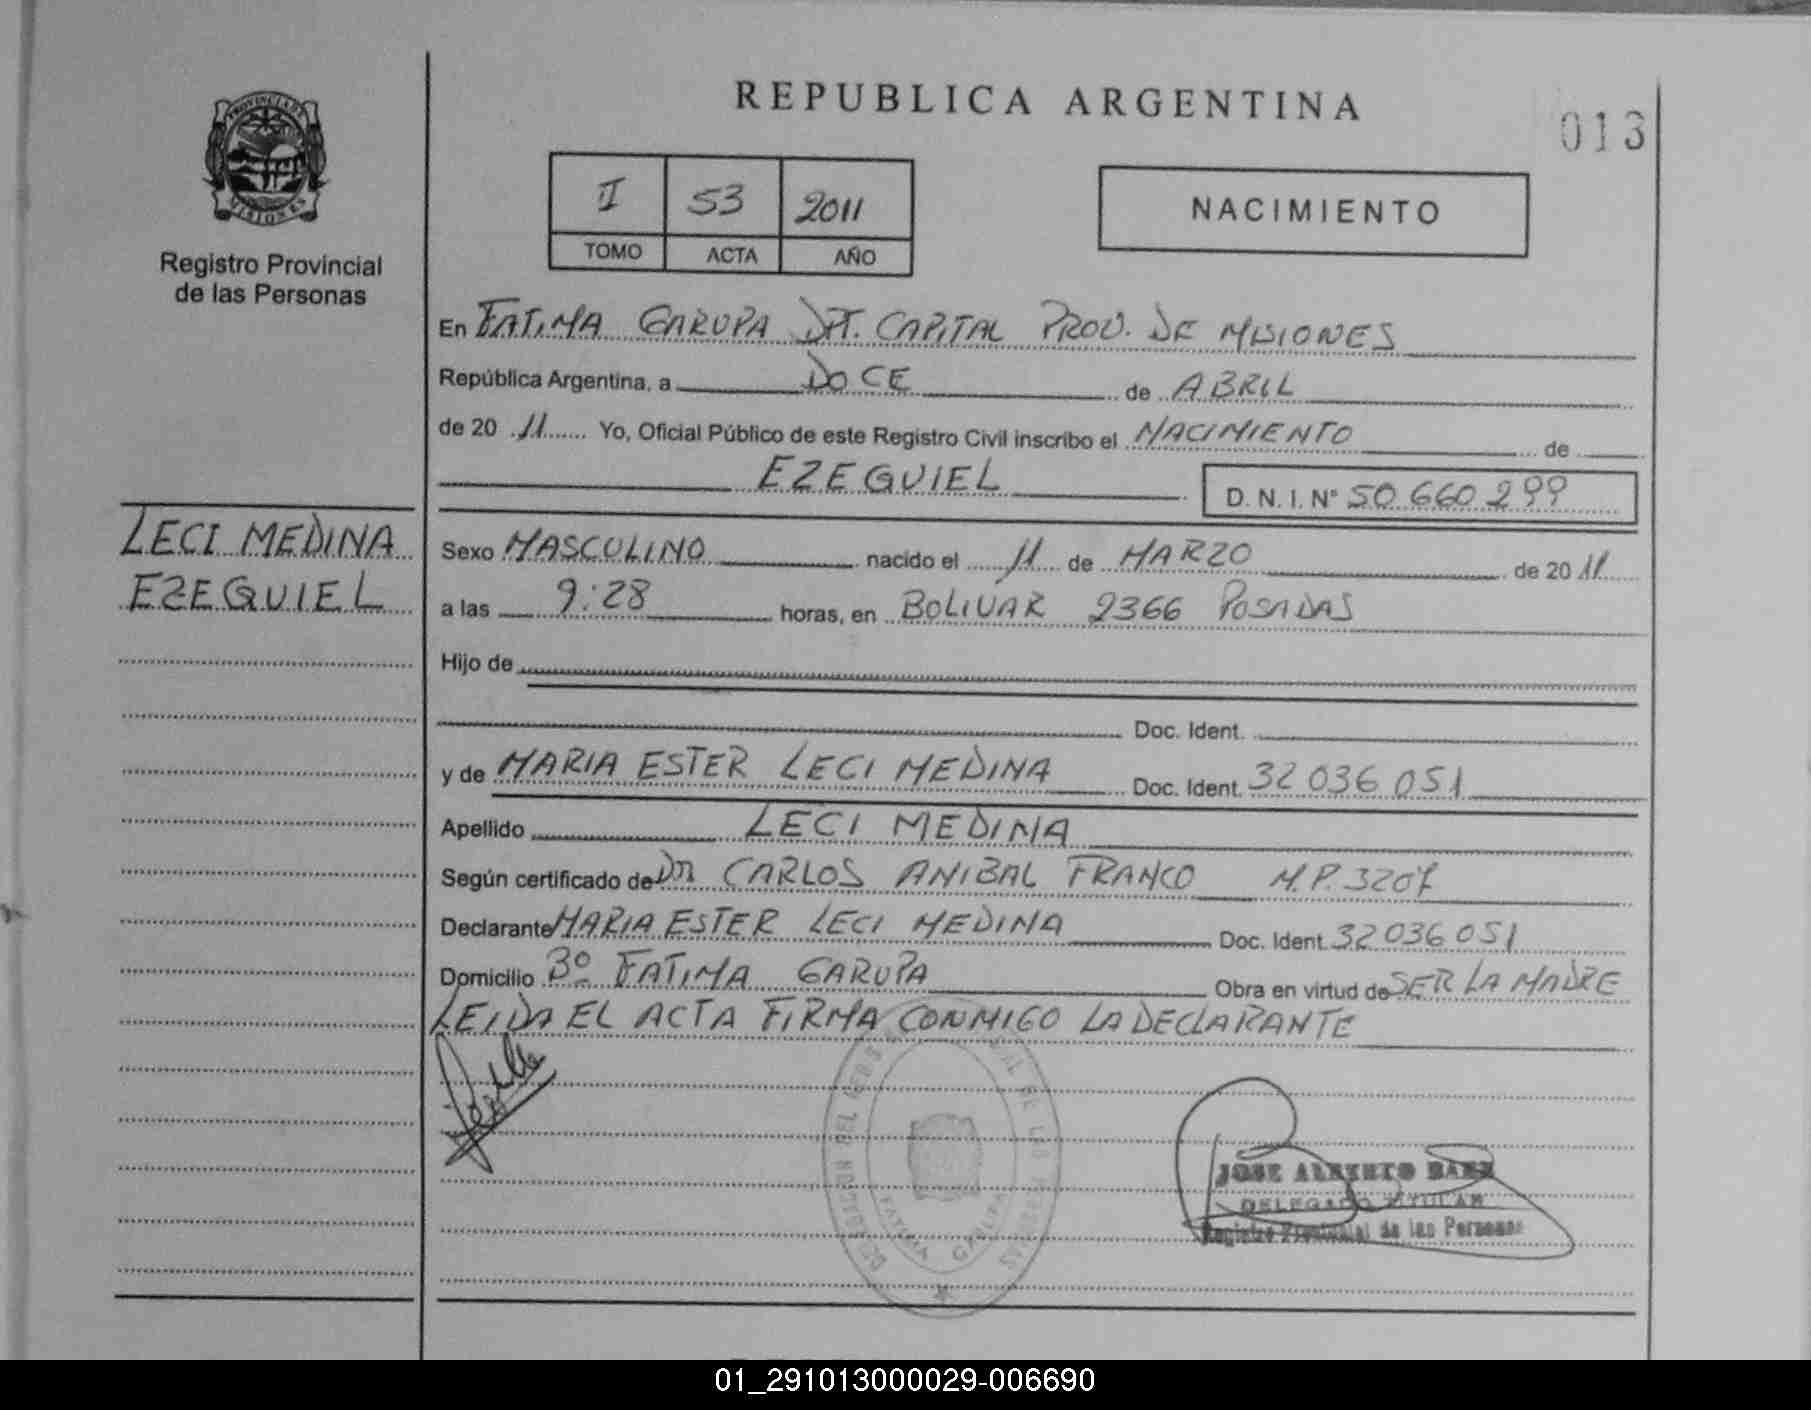 REPUBLICA ARGENTINA
013
PROVINCIA DE
MISIONES
Registro Provincial
de las Personas
II 53 2011
TOMO ACTA AÑO
NACIMIENTO
En FATIMA GARUPA DPT. CAPITAL PROV. DE MISIONES
República Argentina, a DOCE de ABRIL
de 20 11 Yo, Oficial Público de este Registro Civil inscribo el NACIMIENTO de
EZEQUIEL D.N.I. Nº 50.660.299
LECI MEDINA
EZEQUIEL
Sexo MASCULINO nacido el 11 de MARZO de 20 11
a las 9:28 horas, en BOLIVAR 2366 POSADAS
Hijo de
Doc. Ident.
y de MARIA ESTER LECI MEDINA Doc. Ident. 32 036 051
Apellido LECI MEDINA
Según certificado de DR CARLOS ANIBAL FRANCO M.P. 3207
Declarante MARIA ESTER LECI MEDINA Doc. Ident. 32 036 051
Domicilio Bº FATIMA GARUPA Obra en virtud de SER LA MADRE
LEIDA EL ACTA FIRMA CONMIGO LA DECLARANTE
FATIMA GARUPA
JOSE ALBERTO BAEZ
DELEGADO TITULAR
Registro Provincial de las Personas
01_291013000029-006690